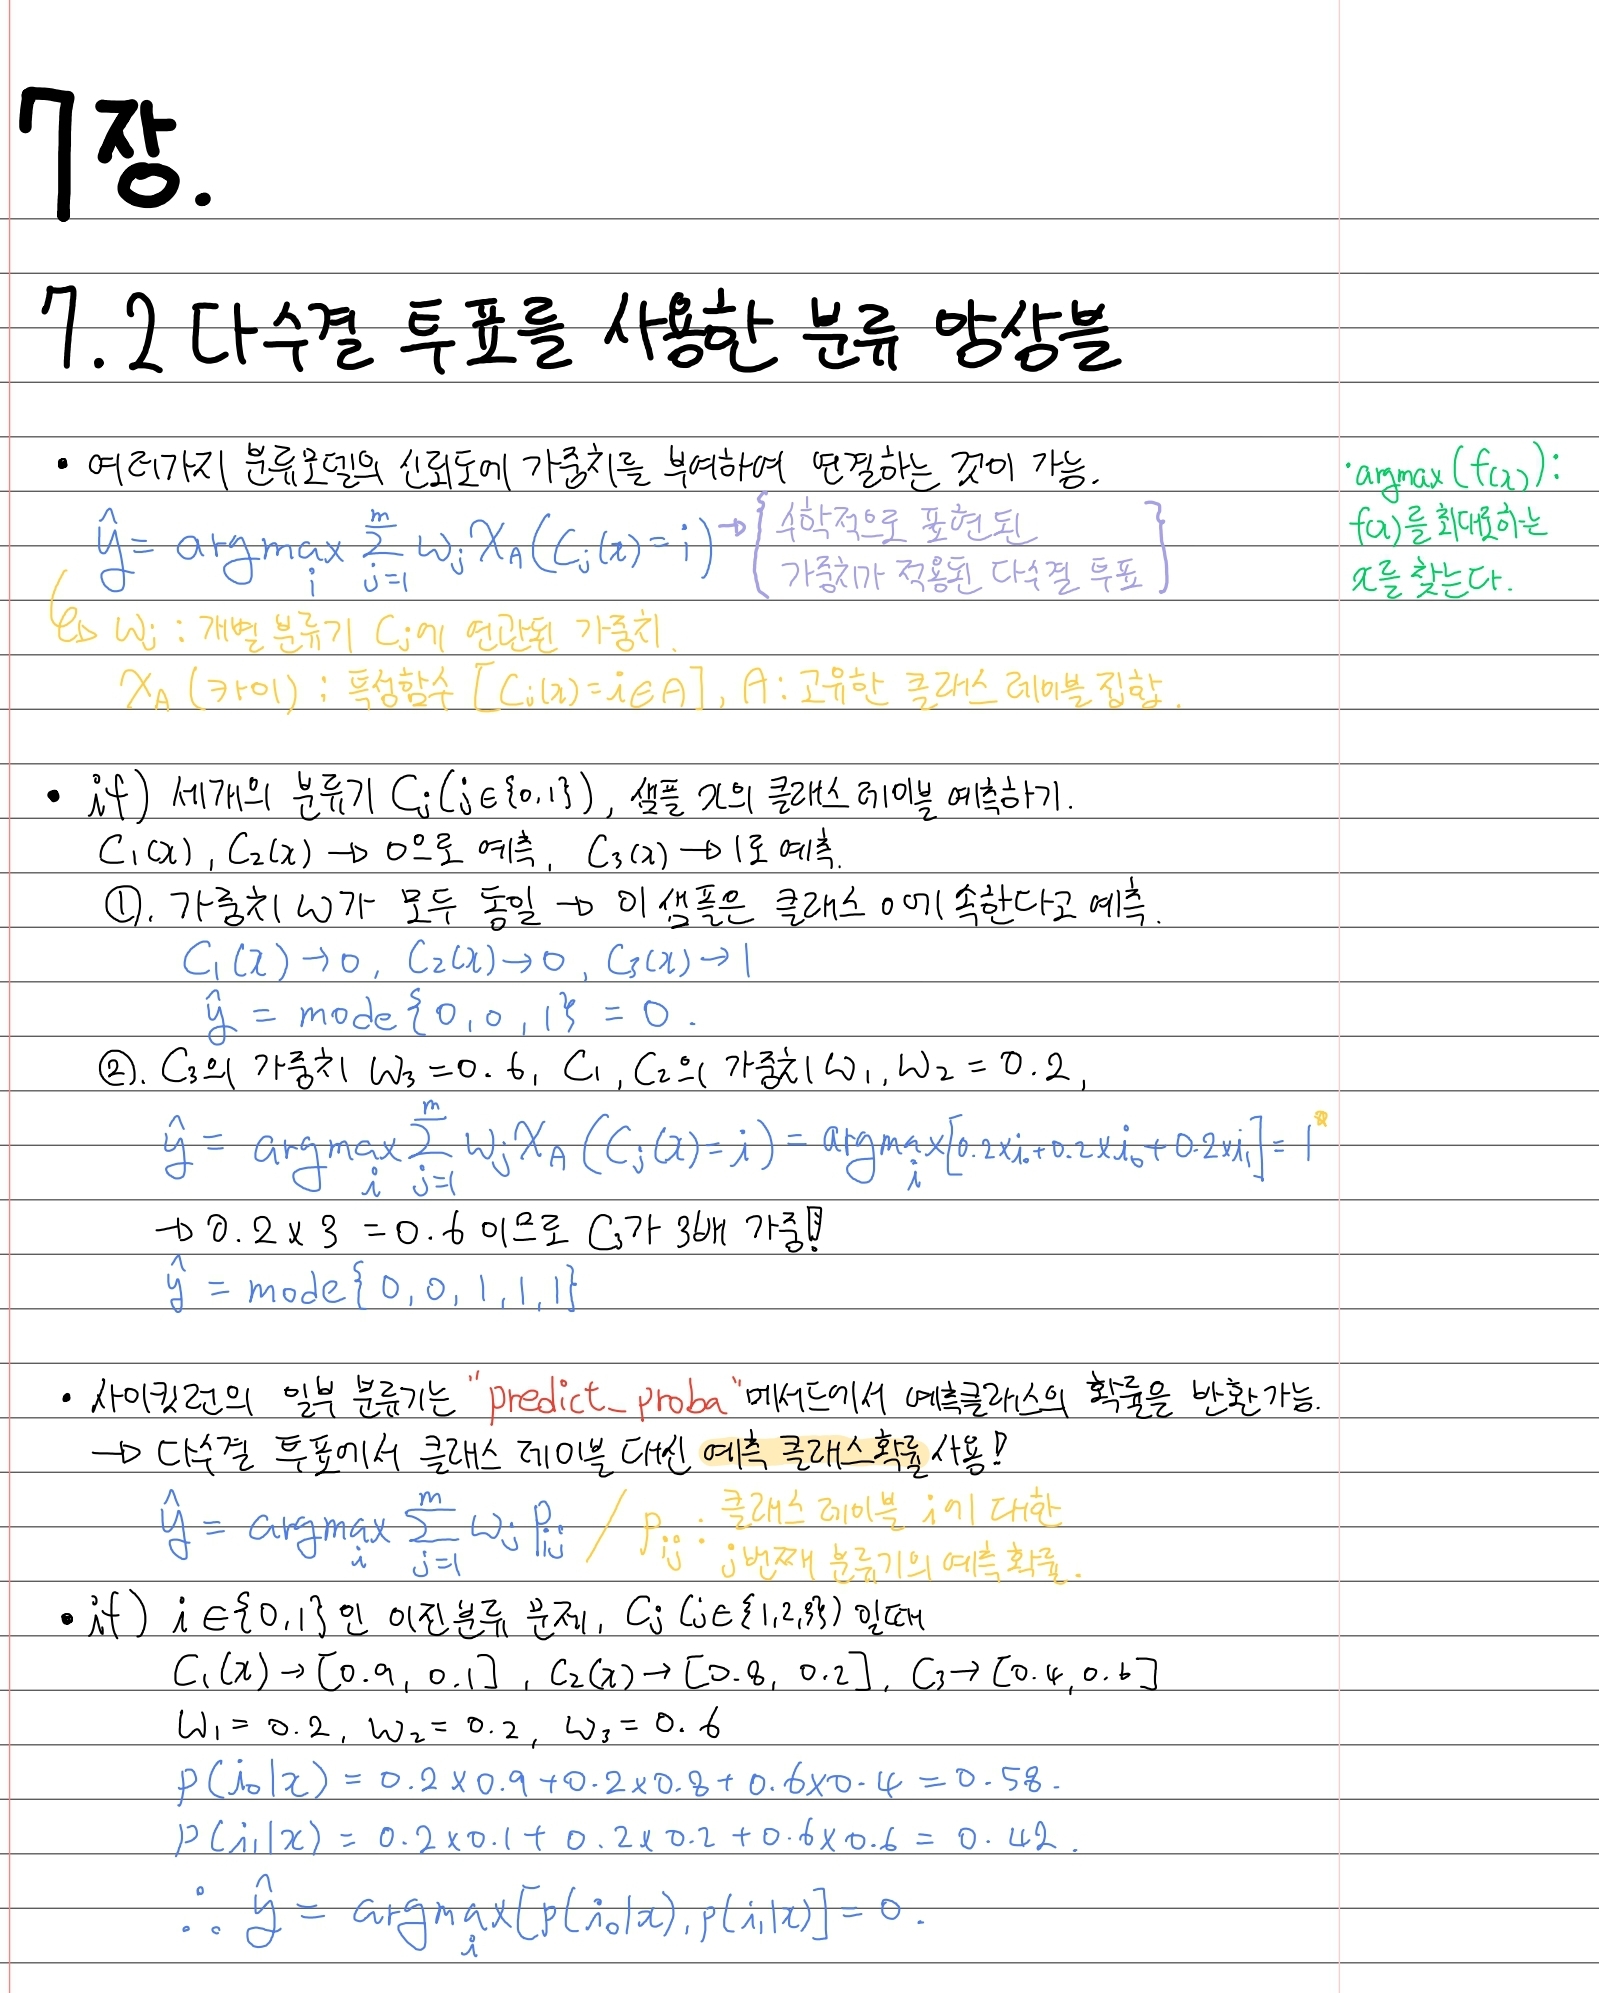 7장.
7.2 다수결 투표를 사용한 분류 앙상블
• 여러가지 분류모델의 신뢰도에 가중치를 부여하여 연결하는 것이 가능.
ŷ = argmax_i Σ_{j=1}^{m} w_j χ_A (C_j(x) = i) → { 수학적으로 표현된
가중치가 적용된 다수결 투표 }
↳ w_j : 개별 분류기 C_j에 연관된 가중치.
χ_A (카이) : 특성함수 [C_j(x) = i ∈ A], A : 고유한 클래스 레이블 집합.
• argmax (f(x)) :
f(x)를 최대로하는
x를 찾는다.
• if) 세개의 분류기 C_j (j ∈ {0,1}), 샘플 x의 클래스 레이블 예측하기.
C₁(x), C₂(x) → 0으로 예측, C₃(x) → 1로 예측.
①. 가중치 w가 모두 동일 → 이 샘플은 클래스 0에 속한다고 예측.
C₁(x) → 0, C₂(x) → 0, C₃(x) → 1
ŷ = mode{0, 0, 1} = 0.
②. C₃의 가중치 w₃ = 0.6, C₁, C₂의 가중치 w₁, w₂ = 0.2,
ŷ = argmax_i Σ_{j=1}^{m} w_j χ_A (C_j(x) = i) = argmax_i [0.2×i₀ + 0.2×i₀ + 0.2×i₁] = 1
→ 0.2 × 3 = 0.6 이므로 C₃가 3배 가중!!
ŷ = mode{0, 0, 1, 1, 1}
• 사이킷런의 일부 분류기는 "predict_proba" 메서드에서 예측클래스의 확률을 반환가능.
→ 다수결 투표에서 클래스 레이블 대신 예측 클래스확률 사용!
ŷ = argmax_i Σ_{j=1}^{m} w_j p_{ij} / p_{ij} : 클래스 레이블 i에 대한
j번째 분류기의 예측 확률.
• if) i ∈ {0,1} 인 이진분류 문제, C_j (j ∈ {1,2,3}) 일때
C₁(x) → [0.9, 0.1], C₂(x) → [0.8, 0.2], C₃ → [0.4, 0.6]
w₁ = 0.2, w₂ = 0.2, w₃ = 0.6
p(i₀|x) = 0.2 × 0.9 + 0.2 × 0.8 + 0.6 × 0.4 = 0.58.
p(i₁|x) = 0.2 × 0.1 + 0.2 × 0.2 + 0.6 × 0.6 = 0.42.
∴ ŷ = argmax_i [p(i₀|x), p(i₁|x)] = 0.